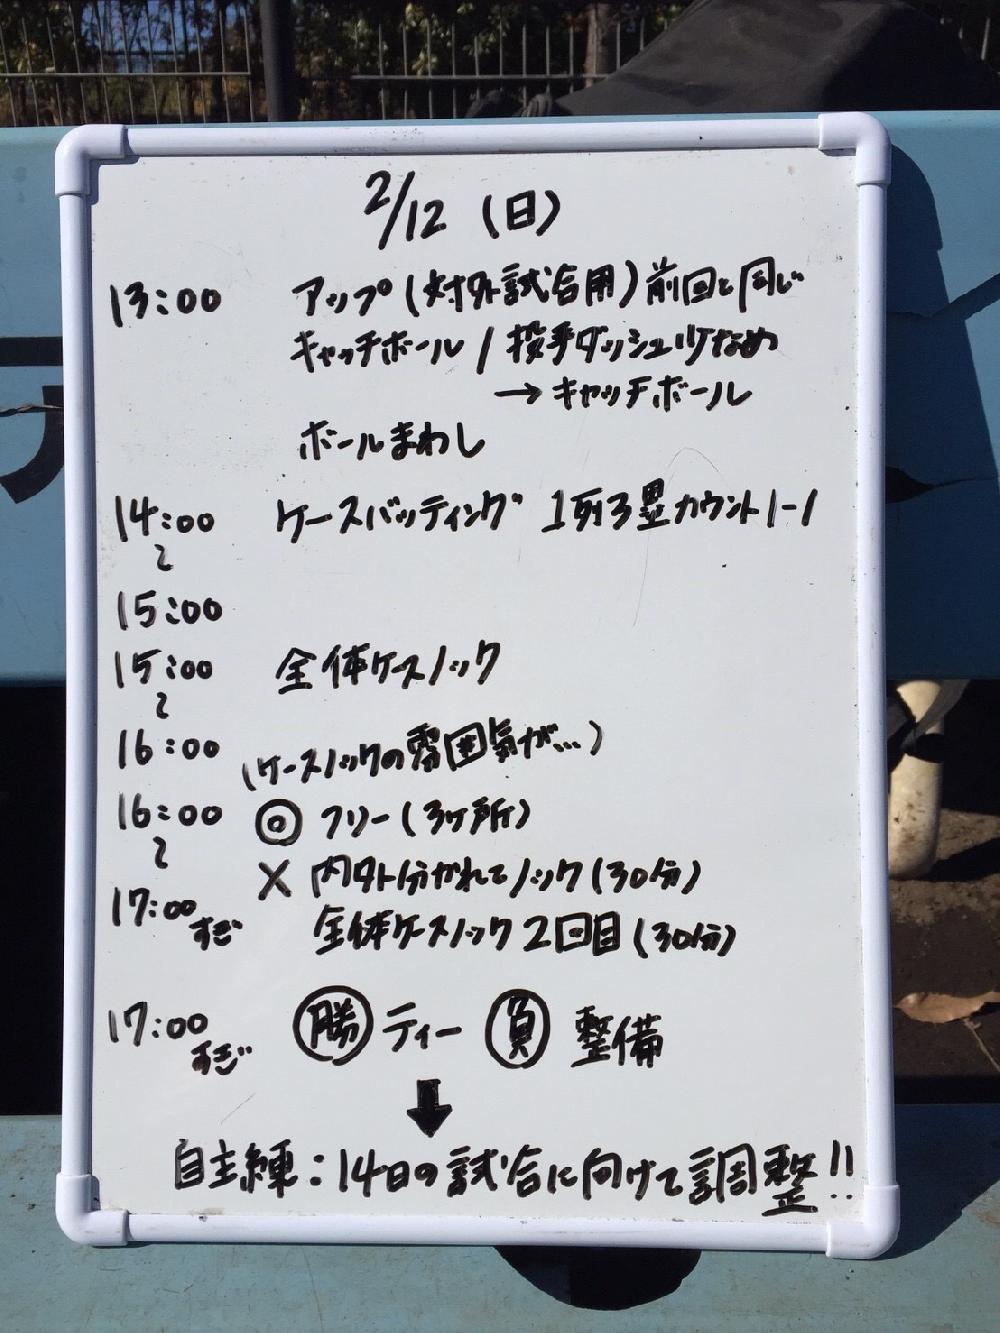 2/12 (日)
13:00 アップ(対外試合用)前回と同じ
キャッチボール / 投手ダッシュ少なめ
→ キャッチボール
ボールまわし
14:00 ケースバッティング 1死3塁カウント1-1
〜
15:00
15:00 全体ケースノック
〜
16:00 (ケースノックの雰囲気が…)
16:00 ◎ フリー(3ヶ所)
〜
× 内外分かれてノック(30分)
17:00すぎ 全体ケースノック2回目(30分)
17:00すぎ 勝 ティー 負 整備
↓
自主練:14日の試合に向けて調整!!